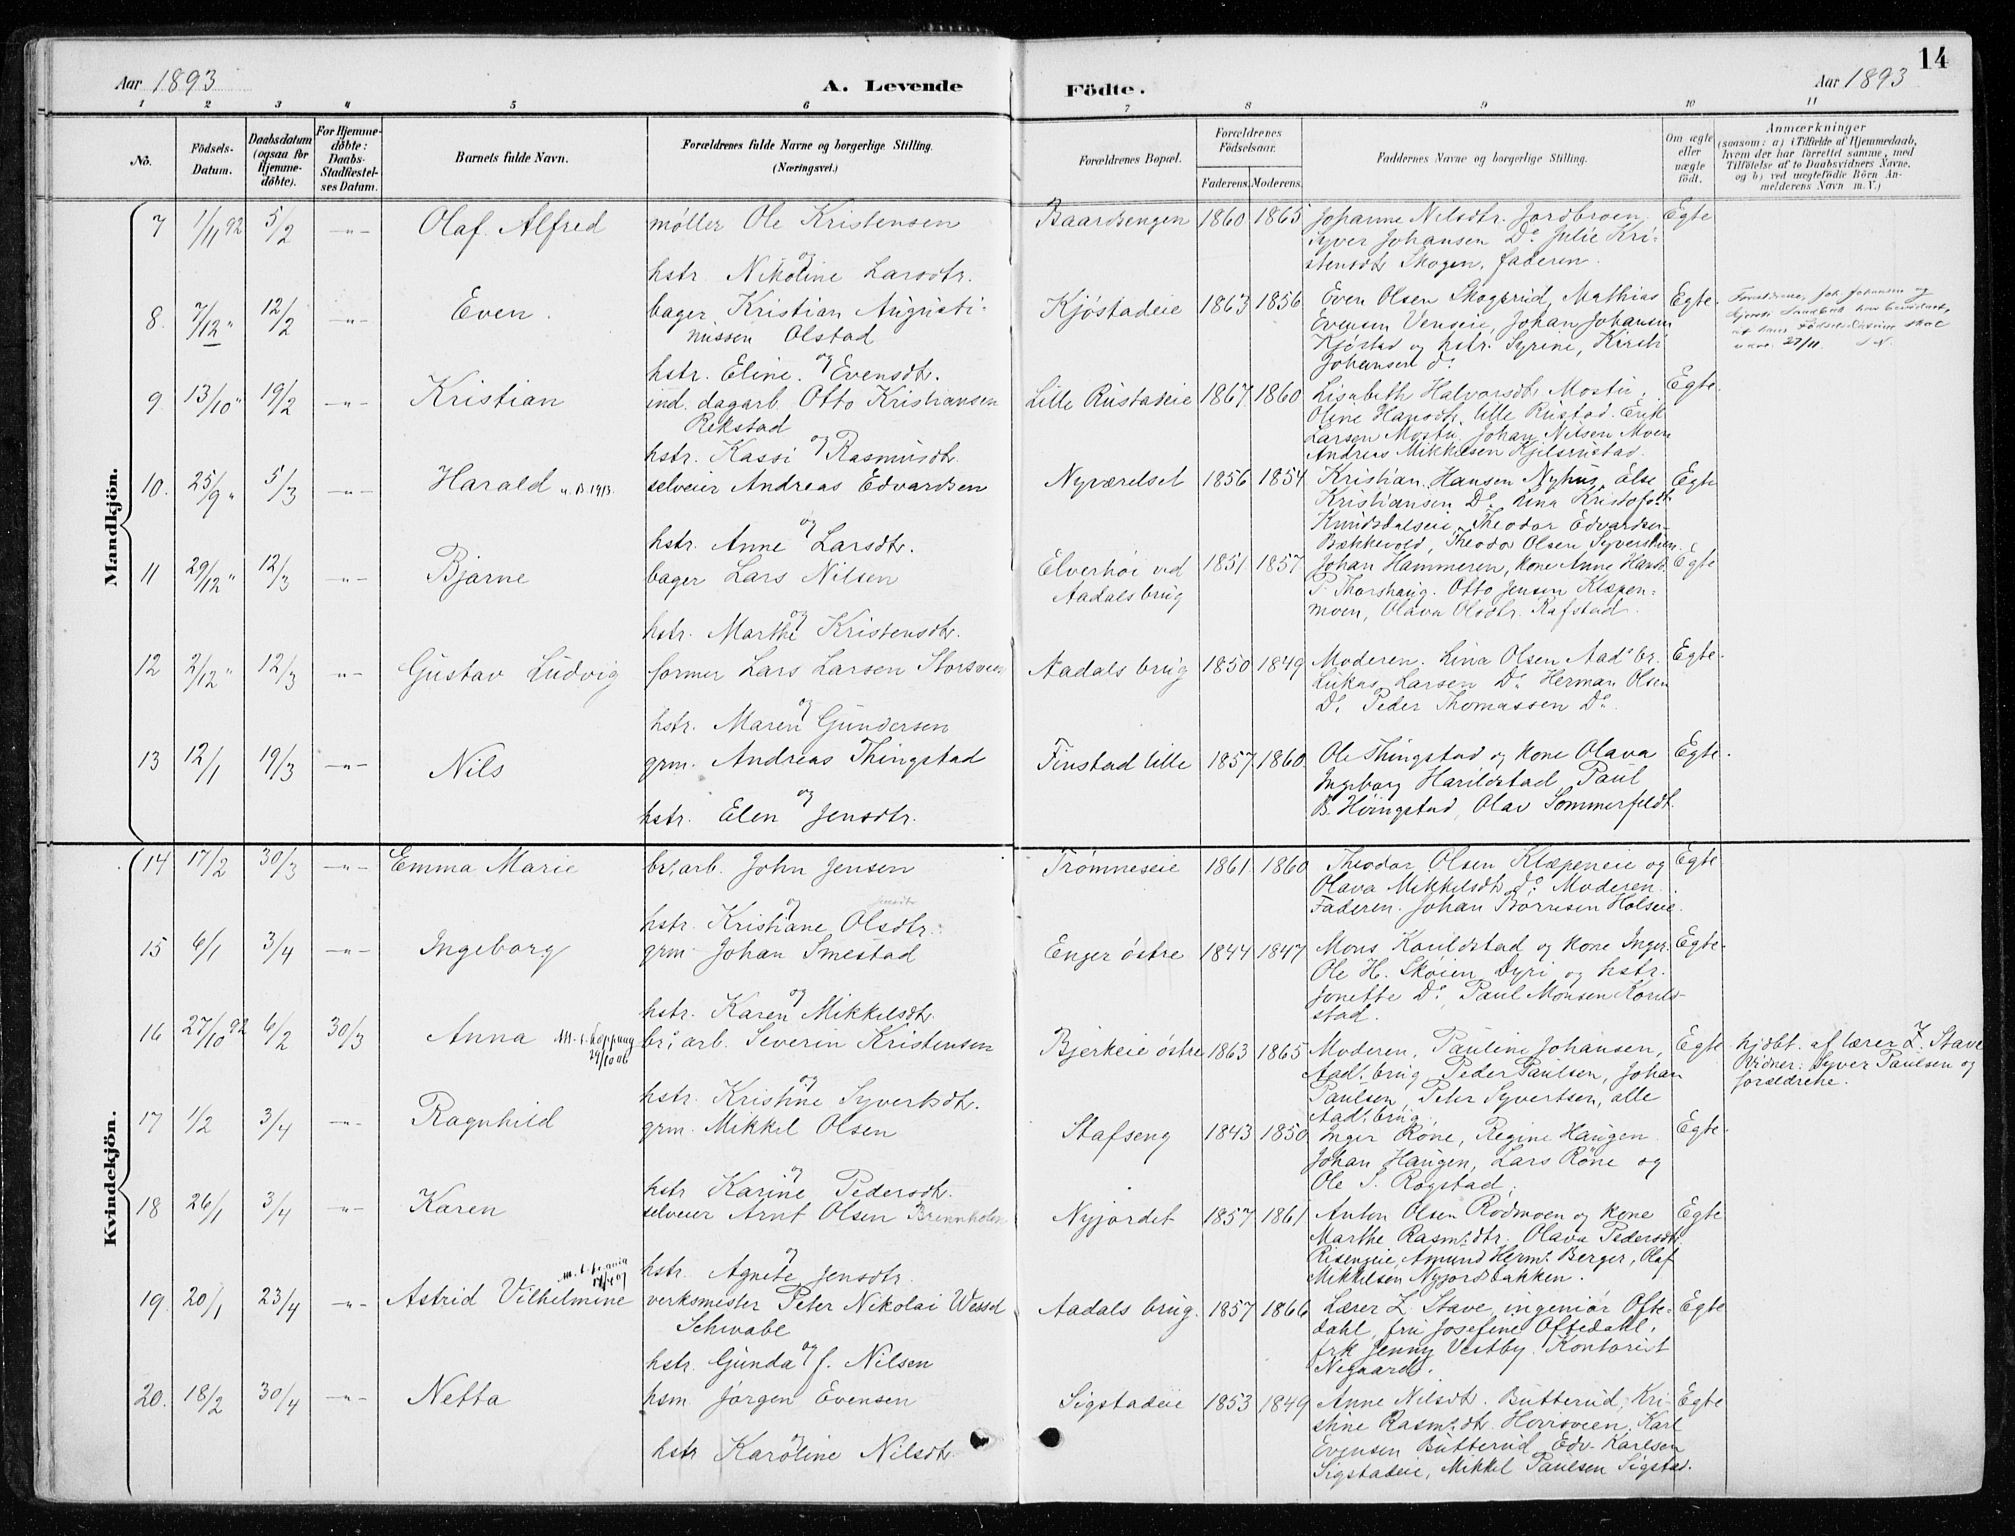 14
Aar 1893 A. Levende Födte. Aar 1893
1 2 3 4 5 6 7 8 9 10 11
No.
Födsels-Datum.
Daabsdatum (ogsaa for Hjemmedöbte).
For Hjemmedöbte: Daabs-Stadfæstelses Datum.
Barnets fulde Navn.
Forældrenes fulde Navne og borgerlige Stilling. (Næringsvei.)
Forældrenes Bopæl.
Forældrenes Födselsaar.
Faderens. Moderens.
Faddernes Navne og borgerlige Stilling.
Om ægte eller uægte födt.
Anmærkninger
(saasom: a) i Tilfælde af Hjemmedaab, hvem der har forrettet samme, med Tilföielse af to Daabsvidners Navne, og b) ved uægtefödte Börn Anmelderens Navn m. V.)
Mandkjön.
7 1/11 92 5/2 -"- Olaf Alfred
møller Ole Kristensen
og
hstr. Nikoline Larsdtr.
Baardsengen 1860 1865
Johanne Nilsdtr. Jordbroen
Syver Johansen Do. Julie Kri-
stensdtr Skogen, faderen.
Egte
8. 7/12 " 12/2 -"- Even.
bager Kristian Augusti-
nussen Olstad
og
hstr. Eline Evensdtr.
Kjøstadeie 1863 1856
Even Olsen Skogsrud, Mathias
Evensen Venseie, Johan Johansen
Kjøstad og hstr. Syrene, Kirsti
Johansen Do.
Egte.
at hans Fødselsdatum skal
være 27/11
9 13/10 " 19/2 -"- Kristian
ind. dagarb. Otto Kristiansen
Rekstad
og
hstr. Kassi Rasmusdtr.
Lille Rustadeie 1867 1860
Lisabeth Halvorsdtr Mostu,
Oline Hansdtr. lille Rustad. Erik
Larsen Mostu. Johan Nilsen Moen
Andreas Mikkelsen Kjilsrustad.
Egte.
10. 25/9 " 5/3 -"- Harald
selveier Andreas Edvardsen
og
hstr. Anne Larsdtr.
Nyværelset 1856 1854
Kristian Hansen Nyhus, Else
Kristiansen Do. Lina Kristofdtr
Kundsdalseie. Theodor Edvardsen
Bækkevold, Theodor Olsen Syverstuen.
Egte
11 29/12 " 12/3 -"- Bjarne
bager Lars Nilsen
og
hstr. Marthe Kristensdtr.
Elverhøi ved
Aadals brug
1851 1857
Johan Hammeren, kone Anne Hansd.
P. Thorshaug. Otto Jensen Klæpen-
moen, Olava Olsdtr. Rafstad.
Egte
12 2/12 " 12/3 -"- Gustav Ludvig
former Lars Larsen Storsveen
og
hstr. Maren Gundersen
Aadals brug 1850 1849
Moderen. Lina Olsen Aads br.
Lukas Larsen Do. Herman Olsen
Do. Peder Thomassen Do.
Egte.
13 12/1 19/3 -"- Nils
grm. Andreas Thingstad
og
hstr. Elen Jensdtr.
Finstad lille 1857 1860
Ole Thingstad og kone Olava
Ingeborg Harildstad, Paul
B. Hvingstad, Olav Sommerfeldt.
Egte.
Kvindekjön.
14 17/2 30/3 -"- Emma Marie
br. arb. John Jensen
og
hstr. Kristiane Olsdtr.
Trømneseie 1861 1860
Theodor Olsen Klæpeneie og
Olava Mikkelsdtr Do. Moderen.
Faderen. Johan Børresen Holseie.
Egte
15 6/1 3/4 -"- Ingeborg
grm. Johan Smestad
og
hstr. Karen Mikkelsdtr.
Enger østre 1844 1847
Mons Korildstad og kone Inger.
Ole H. Skøien Dyri og hstr.
Jonette Do. Paul Monsen Korild-
stad.
Egte.
16 27/10 92 6/2 30/3 Anna
br. arb. Severin Kristensen
og
hstr. Kristine Syvertsdtr.
Bjerkeie østre 1863 1865
Moderen, Pauline Johansen,
Aadl. brug, Peder Paulsen, Johan
Paulsen, Peter Syvertsen, alle
Aadl. brug.
Egte
hjdbt. af lærer Z. Stave
Vidner: Syver Paulsen og
forældrene.
17 1/2 3/4 -"- Ragnhild
grm. Mikkel Olsen
og
hstr Karine Pedersdtr.
Stafseng 1843 1850
Inger Røne, Regine Haugen
Johan Haugen, Lars Røne og
Ole S. Rogstad.
Egte.
18 26/1 3/4 -"- Karen
selveier Arnt Olsen Brennholen
og
hstr. Agnete Jensdtr.
Nyjordet 1857 1861
Anton Olsen Rødmoen og kone
Marthe Rasm. dtr. Olava Pedersdtr.
Risengeie, Amund Herm. Berger, Olaf
Mikkelsen Nyjordsbakken.
Egte
19 20/1 23/4 -"- Astrid Vilhelmine
verksmester Peter Nikolai Wessel
Schwabe
og
hstr. Gunda J. Nilsen
Aadals brug. 1857 1866
Lærer Z. Stave, ingeniør Ofte-
dahl, fru Josefine Oftedahl,
frk Jenny Vestby. Kontorist
Negaard.
Egte
20. 18/2 30/4 -"- Netta
hsm. Jørgen Evensen
og
hstr Karoline Nilsdtr.
Sigstadeie 1853 1849
Anne Nilsdtr. Butterud, Kri-
stine Rasm. dtr. Horrsveen, Karl
Evensen Butterud, Edv. Karlsen
Sigstadeie, Mikkel Paulsen Sigstad.
Egte